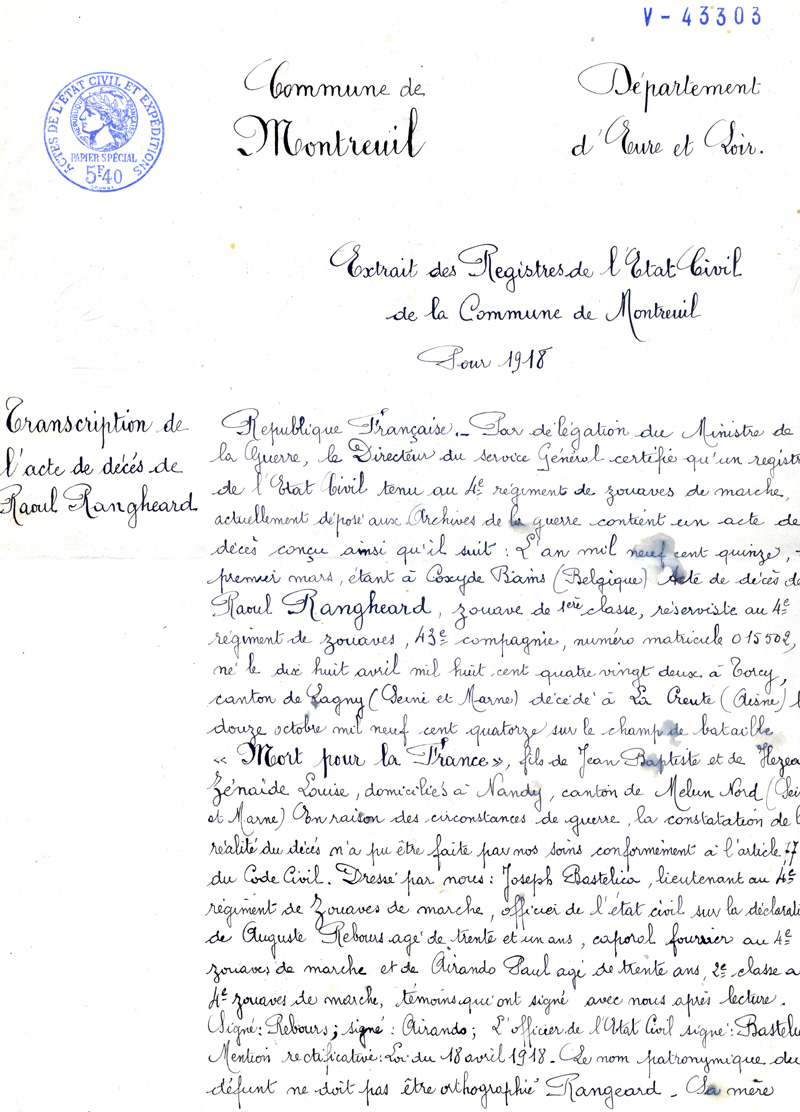 V - 43303
ACTES DE L'ÉTAT CIVIL ET EXPÉDITIONS
RÉPUBLIQUE FRANÇAISE
PAPIER SPÉCIAL
5F40
Commune de
Montreuil
Département
d'Eure et Loir.
Extrait des Registres de l'Etat Civil
de la Commune de Montreuil
Pour 1918
Transcription de
l'acte de décés de
Raoul Rangheard
République Française._ Par délégation du Ministre de
la Guerre, le Directeur du service Général certifie qu'un registre
de l'Etat Civil tenu au 4e régiment de zouaves de marche,
actuellement déposé aux Archives de la guerre contient un acte de
décès conçu ainsi qu'il suit : L'an mil neuf cent quinze, -
premier mars, étant à Coxyde Bains (Belgique) Acte de décès de
Raoul Rangheard, zouave de 1ère classe, réserviste au 4e
régiment de zouaves, 43e compagnie, numéro matricule 015502,
né le dix huit avril mil huit cent quatre vingt deux à Torcy,
canton de Lagny (Seine et Marne) décédé à La Creute (Aisne) l
douze octobre mil neuf cent quatorze sur le champ de bataille
« Mort pour la France », fils de Jean Baptiste et de
Zénaïde Louise, domiciliés à Nandy, canton de Melun Nord (Sei
et Marne) En raison des circonstances de guerre, la constatation de l
réalité du décés n'a pu être faite par nos soins conformément à l'article 77
du Code Civil. Dressé par nous : Joseph Bastelica, lieutenant au 4e
régiment de Zouaves de marche, officier de l'état civil sur la déclarati
de Auguste Rebours agé de trente et un ans, caporal fourrier au 4e
zouaves de marche et de Airando Paul agé de trente ans, 2e classe a
4e zouaves de marche, témoins qui ont signé avec nous après lecture.
Signé : Rebours ; signé : Airando ; L'officier de l'Etat Civil signé : Bastelic
Mention rectificative : Loi du 18 avril 1918 - Le nom patronymique du
défunt ne doit pas être orthographié Rangeard - Sa mère